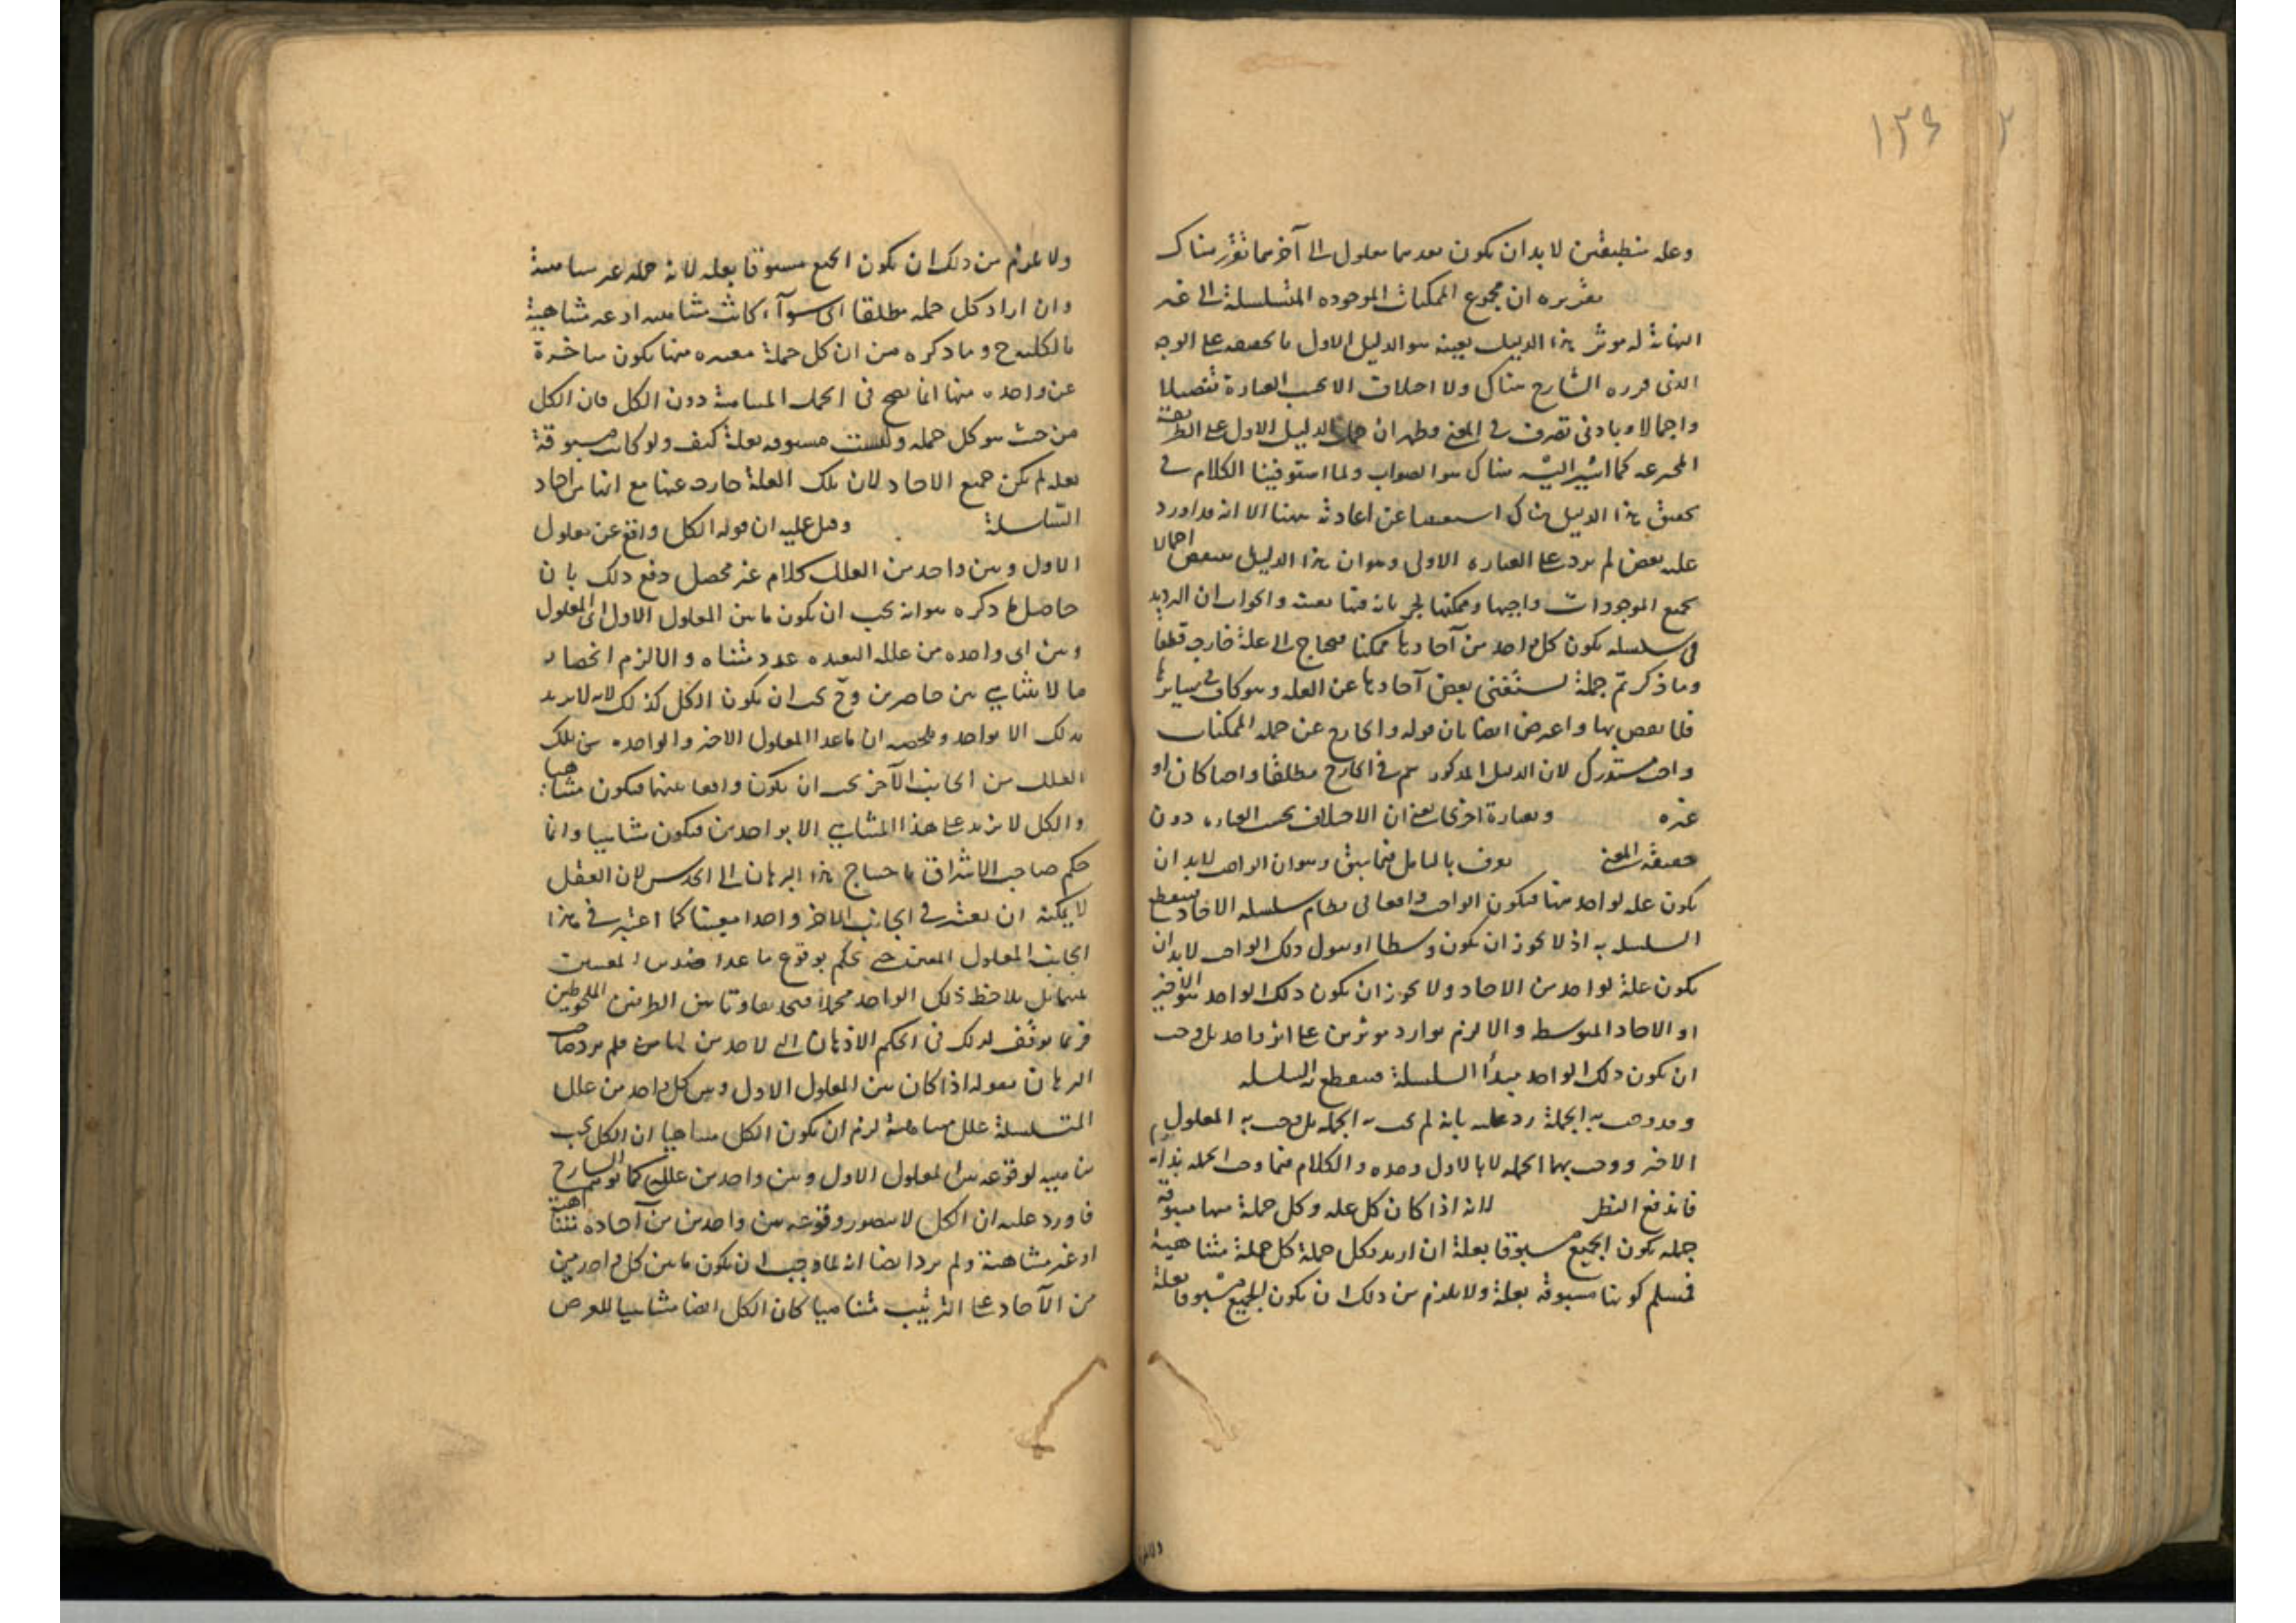 ١٣٤
وعلة منطبقتين لابد ان يكون بعدهما معلول الى آخر ما تقرر هناك
تقريره ان مجموع الممكنات الموجوده المتسلسلة الى غير
النهاية له موثر هذا الدليل بعينه هو الدليل الاول بالحقيقة على الوجه
الذى قرره الشارح هناك ولا اختلاف الا بحسب العبارة تفصيلا
واجمالا وبادنى تصرف فى المعنى وظهر ان حمل الدليل الاول على الطريقة
المخترعه كما اشير اليه هناك هو الصواب ولما استوفينا الكلام فى
تحقيق هذا الدليل هناك استغنينا عن اعادته ههنا الا انه قد اورد
عليه نقض لم يرد على العباره الاولى وهو ان هذا الدليل منقوض اجمالا
بجميع الموجودات واجبها وممكنها لجريانه فيها بعينه والجواب ان الترديد
فى سلسله يكون كل واحد من آحادها ممكنا محتاج الى علة خارجه قطعا
وما ذكرتم جملة يستغنى بعض آحادها عن العله وهو كاف فى سايرها
فلا نقض بها واعترض ايضا بان قوله والخارج عن جملة الممكنات
واجب مستدرك لان الدليل المذكور يتم فى الخارج مطلقا واجبا كان او
غيره وبعبارة اخرى يعنى ان الاختلاف بحسب العباره دون
حقيقة المعنى يعرف بالتامل فيما سبق وهو ان الواجب لابد ان
يكون علة لواحد منها فيكون الواجب واقعا فى نظام سلسله الاحاد فينقطع
السلسله به اذ لا يجوز ان يكون وسطا او نقول ذلك الواجب لابد ان
يكون علة لواحد من الاحاد ولا يجوز ان يكون ذلك الواحد هو الاخير
او الاحاد المتوسط والا لزم توارد موثرين على اثر واحد بل وجب
ان يكون ذلك الواحد مبدأ السلسلة فينقطع به السلسله
وقد وجب به الجملة رد عليه بانه لم يجب به الجمله بل وجب به المعلول
الاخير ووجب بهما الجمله لا بالاول وحده والكلام فيما وجب الجمله بذاته
فاندفع النظر لانه اذا كان كل علة وكل جملة منها مسبوقة
جمله يكون الجميع مسبوقا بعلة ان اريد بكل جملة كل جملة متناهية
فمسلم كونها مسبوقة بعلة ولا يلزم من ذلك ان يكون الجميع مسبوقا بعلة
ولا يلزم من ذلك ان يكون الجميع مسبوقا بعلة لانه جملة غير متناهية
وان اراد كل جملة مطلقا اى سوآء كانت متناهيه او غير متناهية
بالكلية ح وما ذكره من ان كل جملة معينه منها يكون متاخرة
عن واحده منها انما يصح فى الجمل المتناهية دون الكل فان الكل
من حيث هو كل جملة وليست مسبوقه بعلة كيف ولو كانت مسبوقة
بعلة لم يكن جميع الاحاد لان تلك العلة خارجة عنها مع انها من احاد
السلسلة وقيل عليه ان قوله الكل واقع عن معلول
الاول وبين واحد من العلل كلام غير محصل دفع ذلك بان
حاصل ما ذكره هو انه يجب ان يكون ما بين المعلول الاول الى المعلول
وبين اى واحده من علله البعيده عدد متناه والا لزم انحصار
ما لا يتناهى بين حاصرين وح يجب ان يكون الكل كذلك لانه لا يزيد
بذلك الا بواحد وتلخيصه ان ما عدا المعلول الاخير والواحده من تلك
العلل من الجانب الآخر يجب ان يكون واقعا بينهما فيكون متناهيا
والكل لا يزيد على هذا المتناهى الا بواحدين فيكون متناهيا وانما
حكم صاحب الاشراق باحتياج هذا البرهان الى الحدس لان العقل
لا يمكنه ان يعتبر فى الجانب الاخر واحدا معينا كما اعتبر فى هذا
الجانب المعلول المعين حتى يحكم بوقوع ما عدا هذين المعينين
بينهما بل يلاحظ ذلك الواحد مجملا فيجد تفاوتا بين الطرفين الملحوظين
فربما توقف لذلك فى الحكم الاذهان
البرهان بقوله اذا كان بين المعلول الاول وبين كل واحد من علل
المتسلسلة علل متناهية لزم ان يكون الكل متناهيا ان الكل يجب
تناهيه لوقوعه بين المعلول الاول وبين واحد من علله كما توهم الشارح
فاورد عليه ان الكل لا يتصور وقوعه بين واحدين من آحاده متناهية
او غير متناهية ولم يرد ايضا انه لما وجب ان يكون ما بين كل واحد من
من الآحاد على الترتيب متناهيا كان الكل ايضا متناهيا للعرض